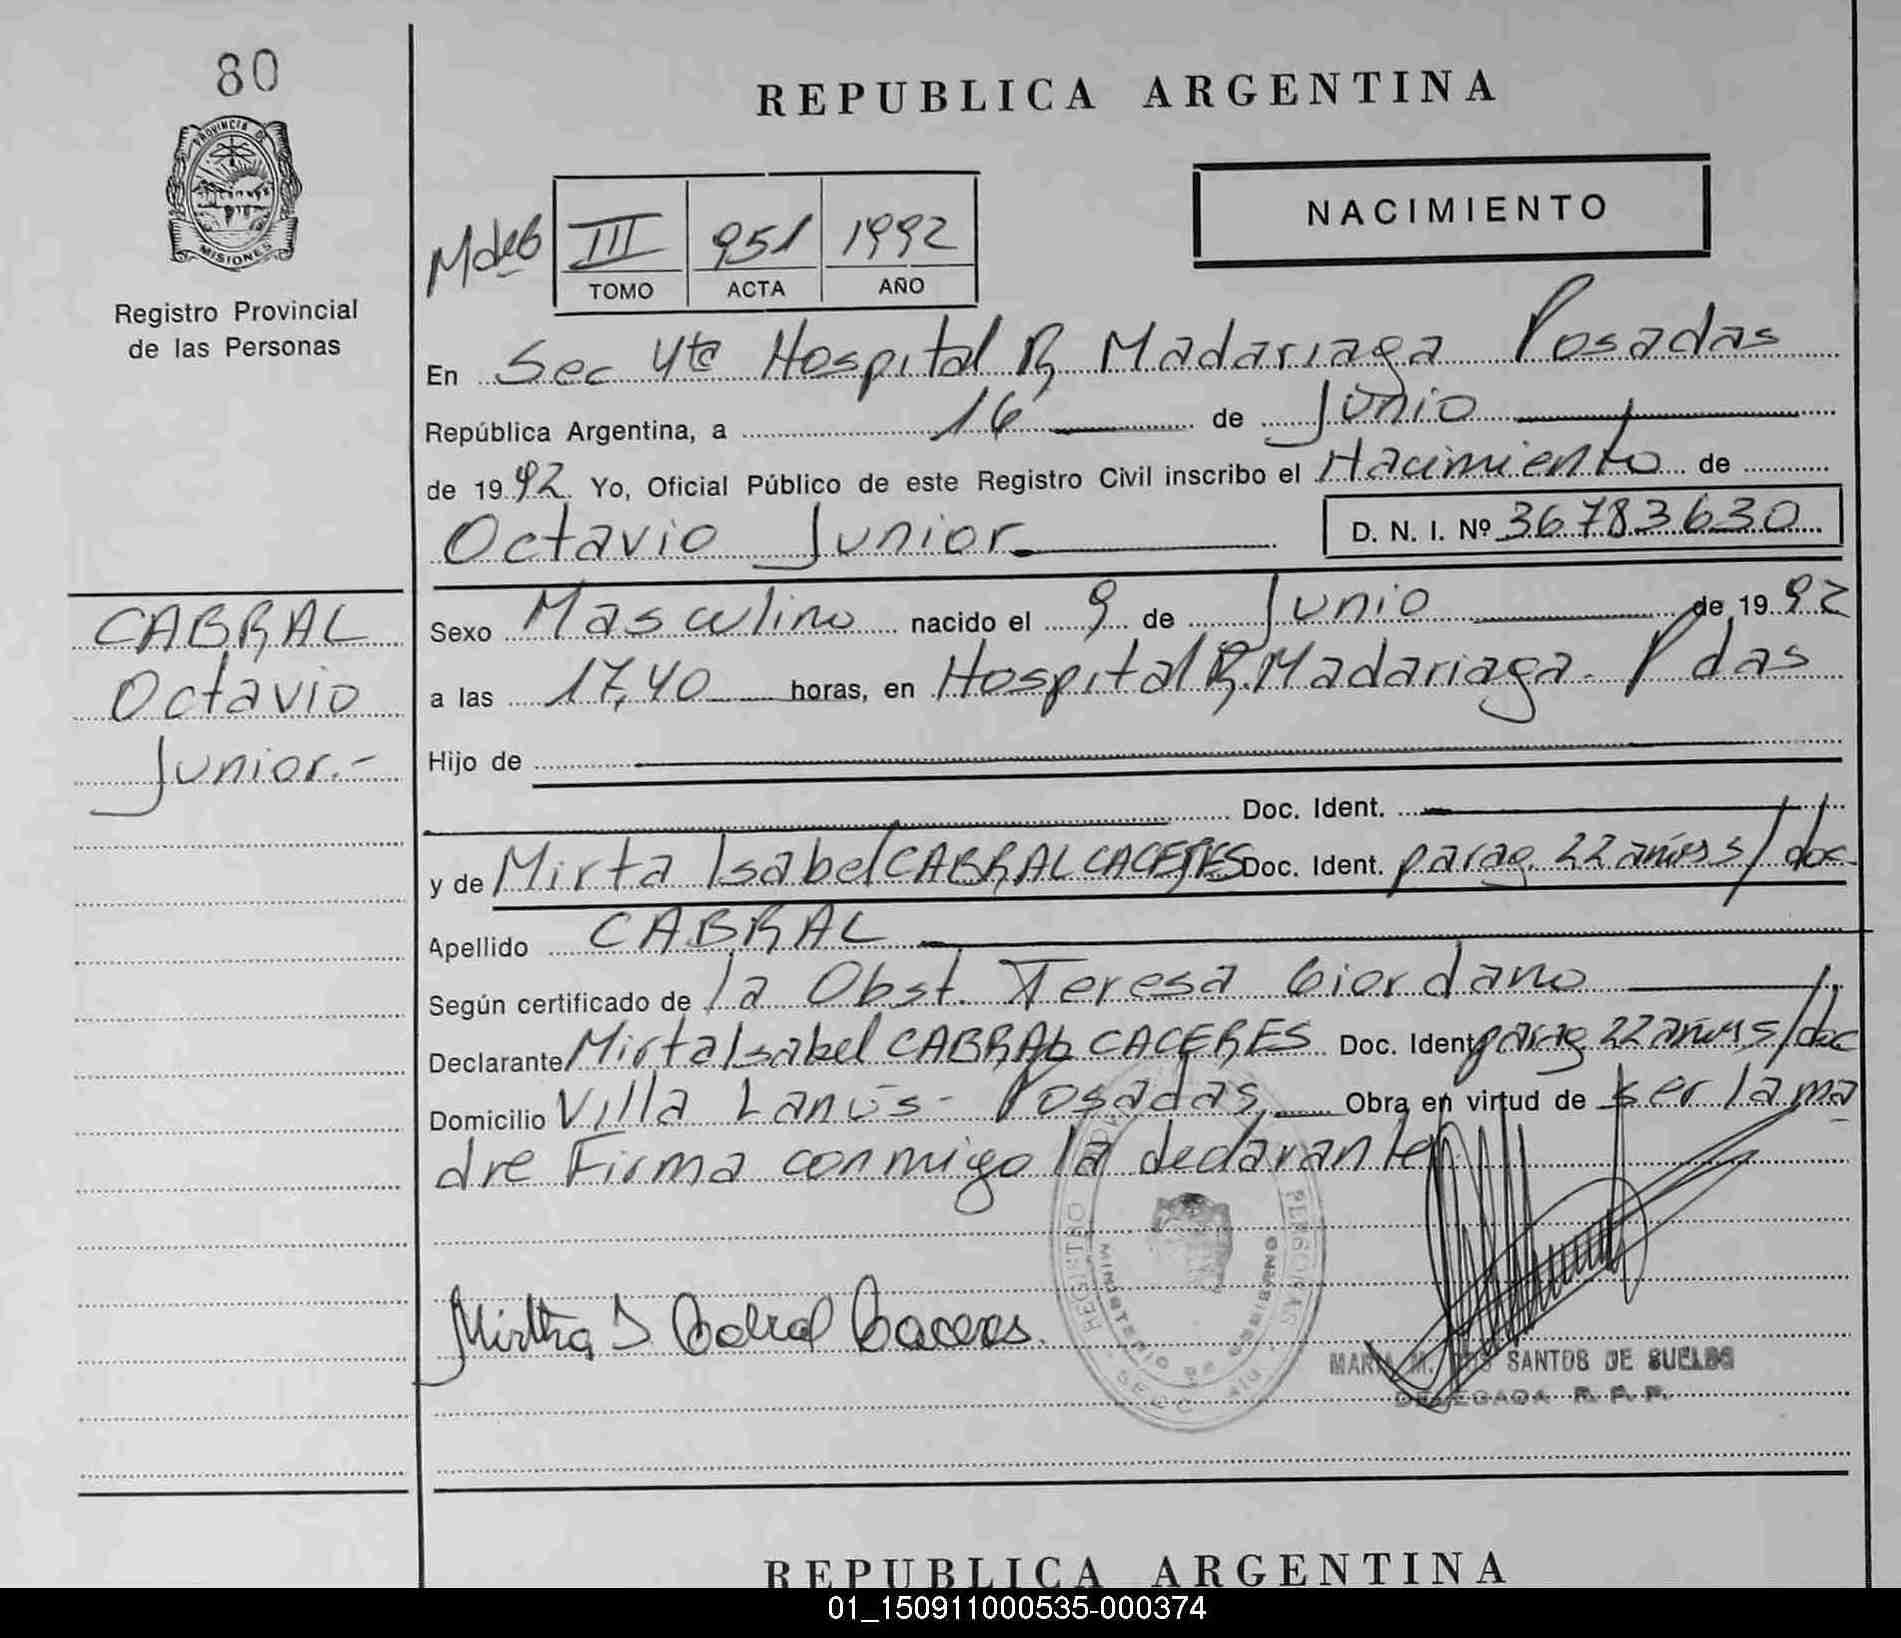 80
REPUBLICA ARGENTINA
PROVINCIA DE
MISIONES
Registro Provincial
de las Personas
NACIMIENTO
III 951 1992
TOMO ACTA AÑO
En Sec 4ta Hospital R. Madariaga Posadas
República Argentina, a 16 de Junio
de 1992 Yo, Oficial Público de este Registro Civil inscribo el Nacimiento de
Octavio Junior D. N. I. Nº 36783630
CABRAL
Octavio
Junior.-
Sexo Masculino nacido el 9 de Junio de 1992
a las 17,40 horas, en Hospital R. Madariaga. Pdas
Hijo de
Doc. Ident.
y de Mirta Isabel CABRAL CACERES Doc. Ident. parag. 22 años s/doc
Apellido CABRAL
Según certificado de la Obst. Teresa Giordano
Declarante Mirta Isabel CABRAL CACERES Doc. Ident parag 22 años s/doc
Domicilio Villa Lanús - Posadas, Obra en virtud de ser la ma
dre Firma conmigo la declarante
Mirtha I Cabral Caceres.
REGISTRO PERSONAS
MINISTERIO DE GOBIERNO
MARIA M. DOS SANTOS DE SUELDO
DELEGADA R. P. P.
REPUBLICA ARGENTINA
01_150911000535-000374